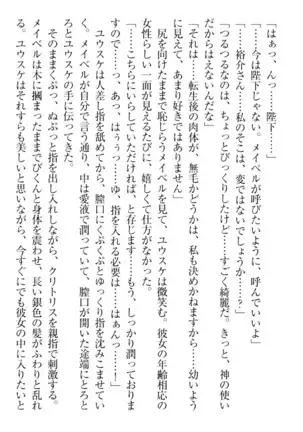 「はぁっ、んっ……陛下……」
「……今は陛下じゃない。メイベルが呼びたいように、呼んでいいよ」
「……裕介さん？　私のそこは、変ではないでしょうか……？」
「つるつるなのは、ちょっとびっくりしたけど……すごく綺麗だ。きっと、神の使いだからはえないんだな」
「それは……転生後の肉体が、無毛かどうかは、私も決めかねますから……幼いようで、あまり好きではありません」
尻を向けたままで恥じらうメイベルを見て、ユウスケは微笑む。彼女の年齢相応の女性らしい一面が見えるたびに、嬉しくて仕方がなかった。
「……こちらにいらしていただければ、と存じます……もう、しっかり潤っておりますので……っ、あっ、はぁぅっ……ゆ、指を入れる必要は……はぁんっ……！」
ユウスケは人差し指を舐めてから、膣口からゆっくり指を沈みこませていく……すると、メイベルが自分で言う通り、中は愛液で潤っていて、膣口が開いた途端にとろとろとユウスケの手に伝ってきた。
そのままくぷっ、ぬぷっと指を出し入れしながら、クリトリスを親指で刺激する。
メイベルは木に摑まったままでびくんと身体を震わせ、長い銀色の髪がふわりと乱れる。ユウスケはそれすらも美しいと思いながら、今すぐにでも彼女の中に入りたいと